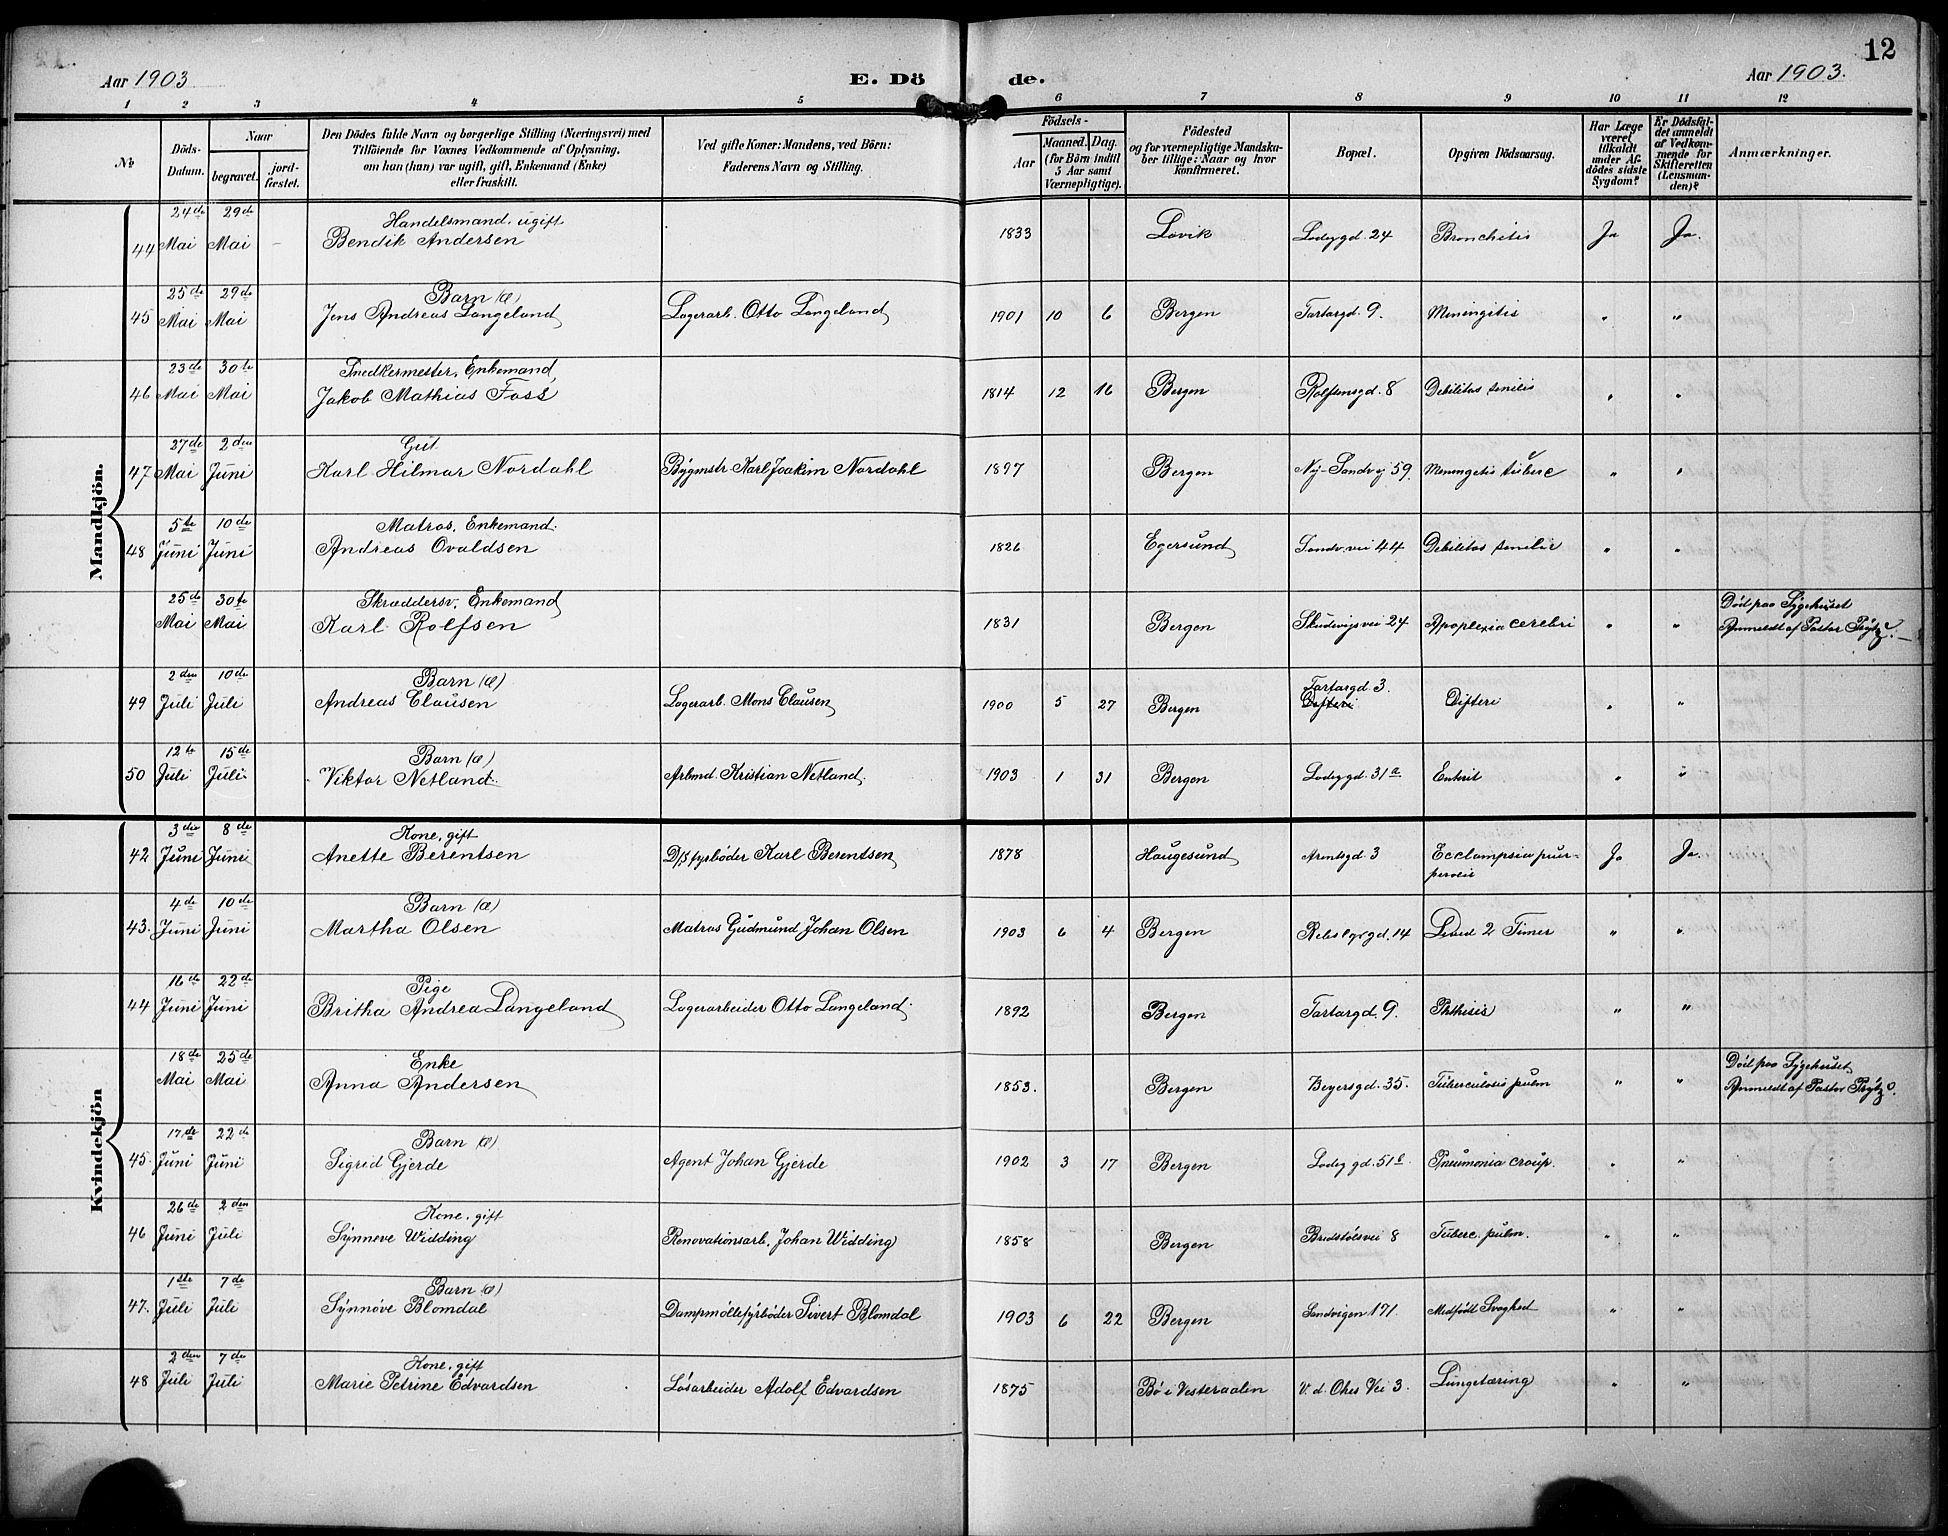 12
Aar 1903
E. Dö
de.
Aar 1903.
1 2 3 4 5 6 7 8 9 10 11 12
No
Döds-Datum.
Naar
begravet.
jord-fæstet.
Den Dödes fulde Navn og borgerlige Stilling (Næringsvei) med
Tilföiende for Voxnes Vedkommende af Oplysning,
om han (hun) var ugift, gift, Enkemand (Enke)
eller fraskilt.
Ved gifte Koner: Mandens, ved Börn:
Faderens Navn og Stilling.
Födsels-
Aar
Maaned. Dag.
(for Börn indtil
5 Aar samt
Værnepligtige).
Födested
og for værnepligtige Mandska-
ber tillige: Naar og hvor
konfirmeret.
Bopæl.
Opgiven Dödsaarsag.
Har Læge
været
tilkaldt
under Af-
dödes sidste
Sygdom?
Er Dödsfal-
det anmeldt
af Vedkom-
mende for
Skifteretten
(Lensman-
den)?
Anmærkninger.
Mandkjön.
24de 29de Handelsmand, ugift
44 Mai Mai Bendik Andersen 1833 Lavik Ladeggd. 24 Bronchitis Ja Ja.
25de 29de Barn (Æ)
45 Mai Mai Jens Andreas Langeland Lagerarb. Otto Langeland 1901 10 6 Bergen Tartargd. 9. Meningitis " "
23de 30te Snedkermester, Enkemand
46 Mai Mai Jakob Mathias Foss 1814 12 16 Bergen Rolfsensgd. 8 Debilitas senilis " "
27de 2den Gut
47 Mai Juni Karl Hilmar Nordahl Bygmstr Karl Joakim Nordahl 1897 Bergen Ny-Sandvej 59. Meningetis tuberc " "
5te 10de Matros, Enkemand.
48 Juni Juni Andreas Ovaldsen 1826 Egersund Sandv. vei 44 Debilitas senilis " "
25de 30te Skræddersv. Enkemand
Mai Mai Karl Rolfsen 1831 Bergen Skudevigsvei 24 Apoplexia cerebri " "
Död paa Sygehuset
Anmeldt af Pastor Prytz.
2den 10de Barn (Æ)
49 Juli Juli Andreas Clausen Lagerarb. Mons Clausen 1900 5 27 Bergen Tartargd. 3. Difteri Difteri " "
12te 15de Barn (Æ)
50 Juli Juli Viktor Netland Arbmd. Kristian Netland 1903 1 31 Bergen Ladeggd. 31a Enterit " "
Kvindekjön
3die 8de Kone, gift
42 Juni Juni Anette Berentsen D/S fyrböder Karl Berentsen 1878 Haugesund Arentsgd. 3 Ecclampsia puer- Ja Ja.
4de 10de Barn (Æ)
43. Juni Juni Martha Olsen Matros Gudmund Johan Olsen 1903 6 4 Bergen Rebslgrgd. 14 Leved 2 Timer " "
16de 22de Pige
44 Juni Juni Britha Andrea Langeland Lagerarbeider Otto Langeland. 1892 Bergen Tartargd. 9. Phthisis " "
18de 25de Enke
Mai Mai Anna Andersen 1853. Bergen Beyersgd. 35. Tuberculosis pulm " "
Död paa Sygehuset
Anmeldt af Pastor Prytz.
17de 22de Barn (Æ)
45. Juni Juni Sigrid Gjerde Agent Johan Gjerde 1902 3 17 Bergen Ladeggd. 51b. Pneumonia croup. " "
26de 2den Kone, gift
46 Juni Juli Synneve Widding Renovationsarb. Johan Widding 1858 Bergen Bredstölsvei 8 Tuberc. pulm. " "
1ste 7de Barn (Æ)
47. Juli Juli Synnöve Blomdal Dampmöllefyrböder Sivert Blomdal 1903 6 22 Bergen Sandvigen 171. Medfödt Svaghed " "
2den 7de Kone, gift
48 Juli Juli Marie Petrine Edvardsen Lösarbeider Adolf Edvardsen 1875 Bö i Vesteraalen V. d. Ohes Vei 3. Lungetæring " "